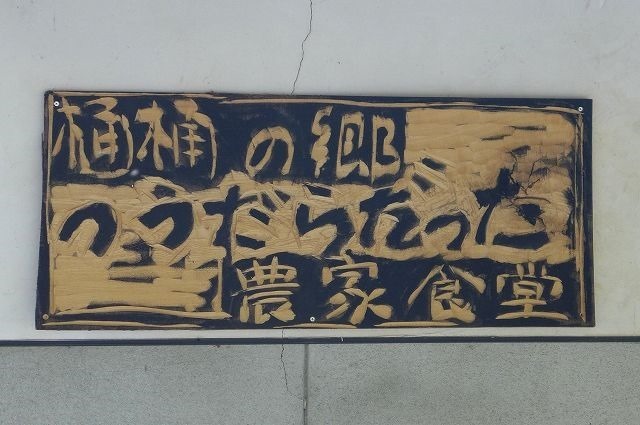 樋桶の郷
つつだらだった
農家食堂